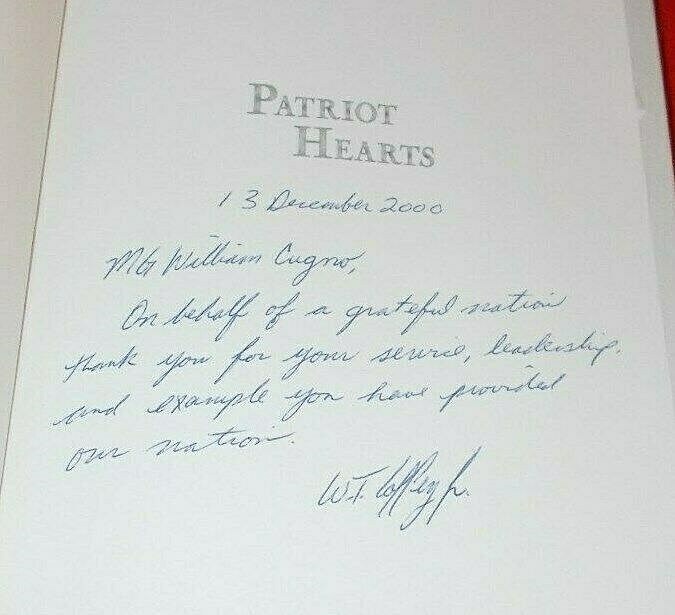 PATRIOT
HEARTS
13 December 2000
MG William Cugno,
On behalf of a grateful nation
thank you for your service, leadership,
and example you have provided
our nation.
W.T. Coffey Jr.